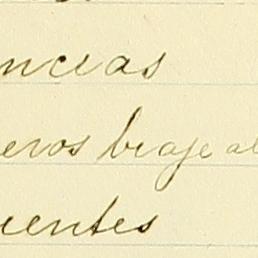 ncias
eros braje al
uentes